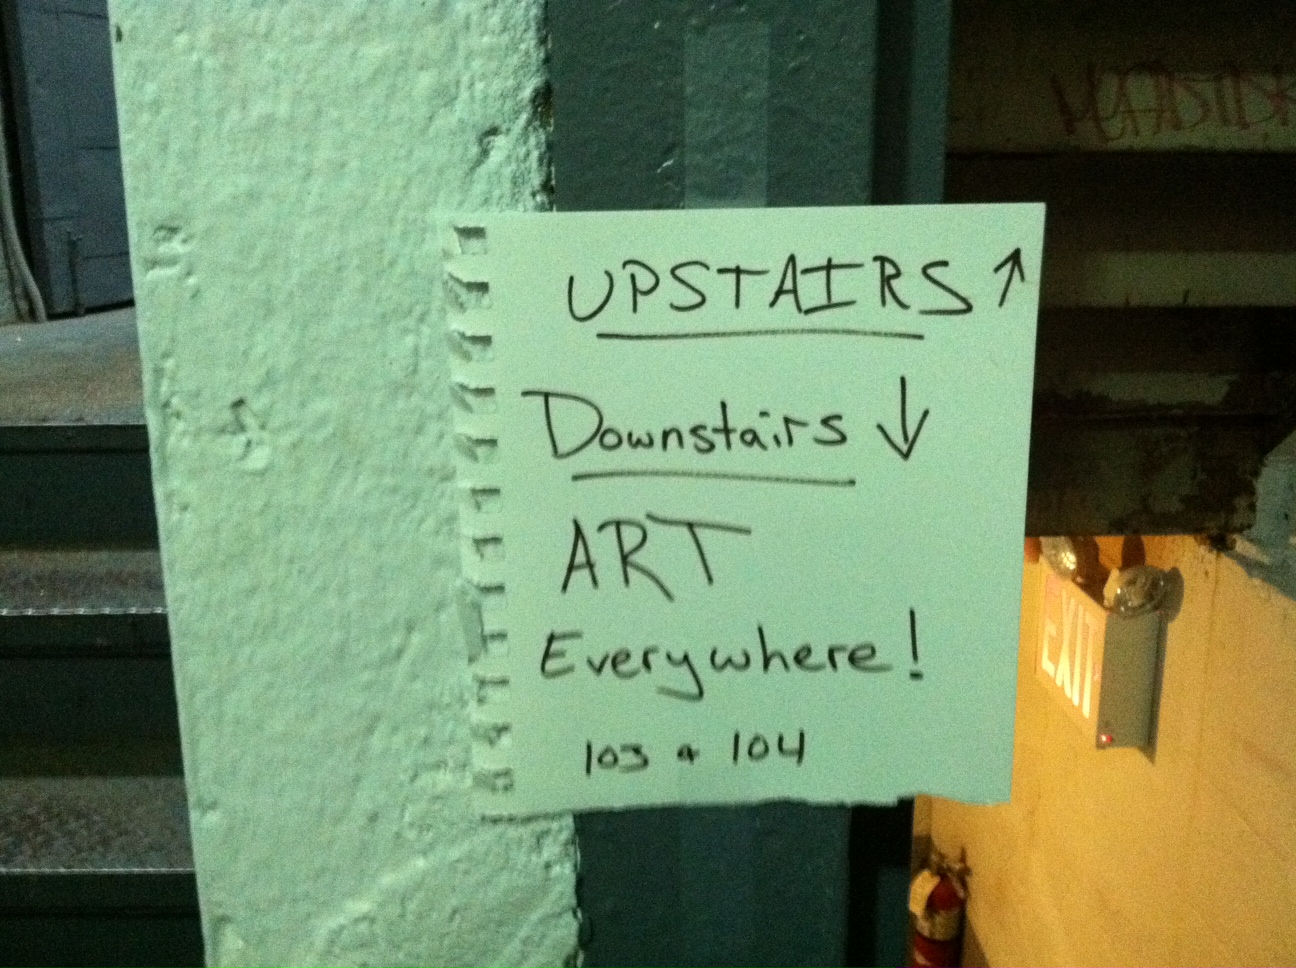 UPSTAIRS ↑
Downstairs ↓
ART
Everywhere!
103 & 104
EXIT